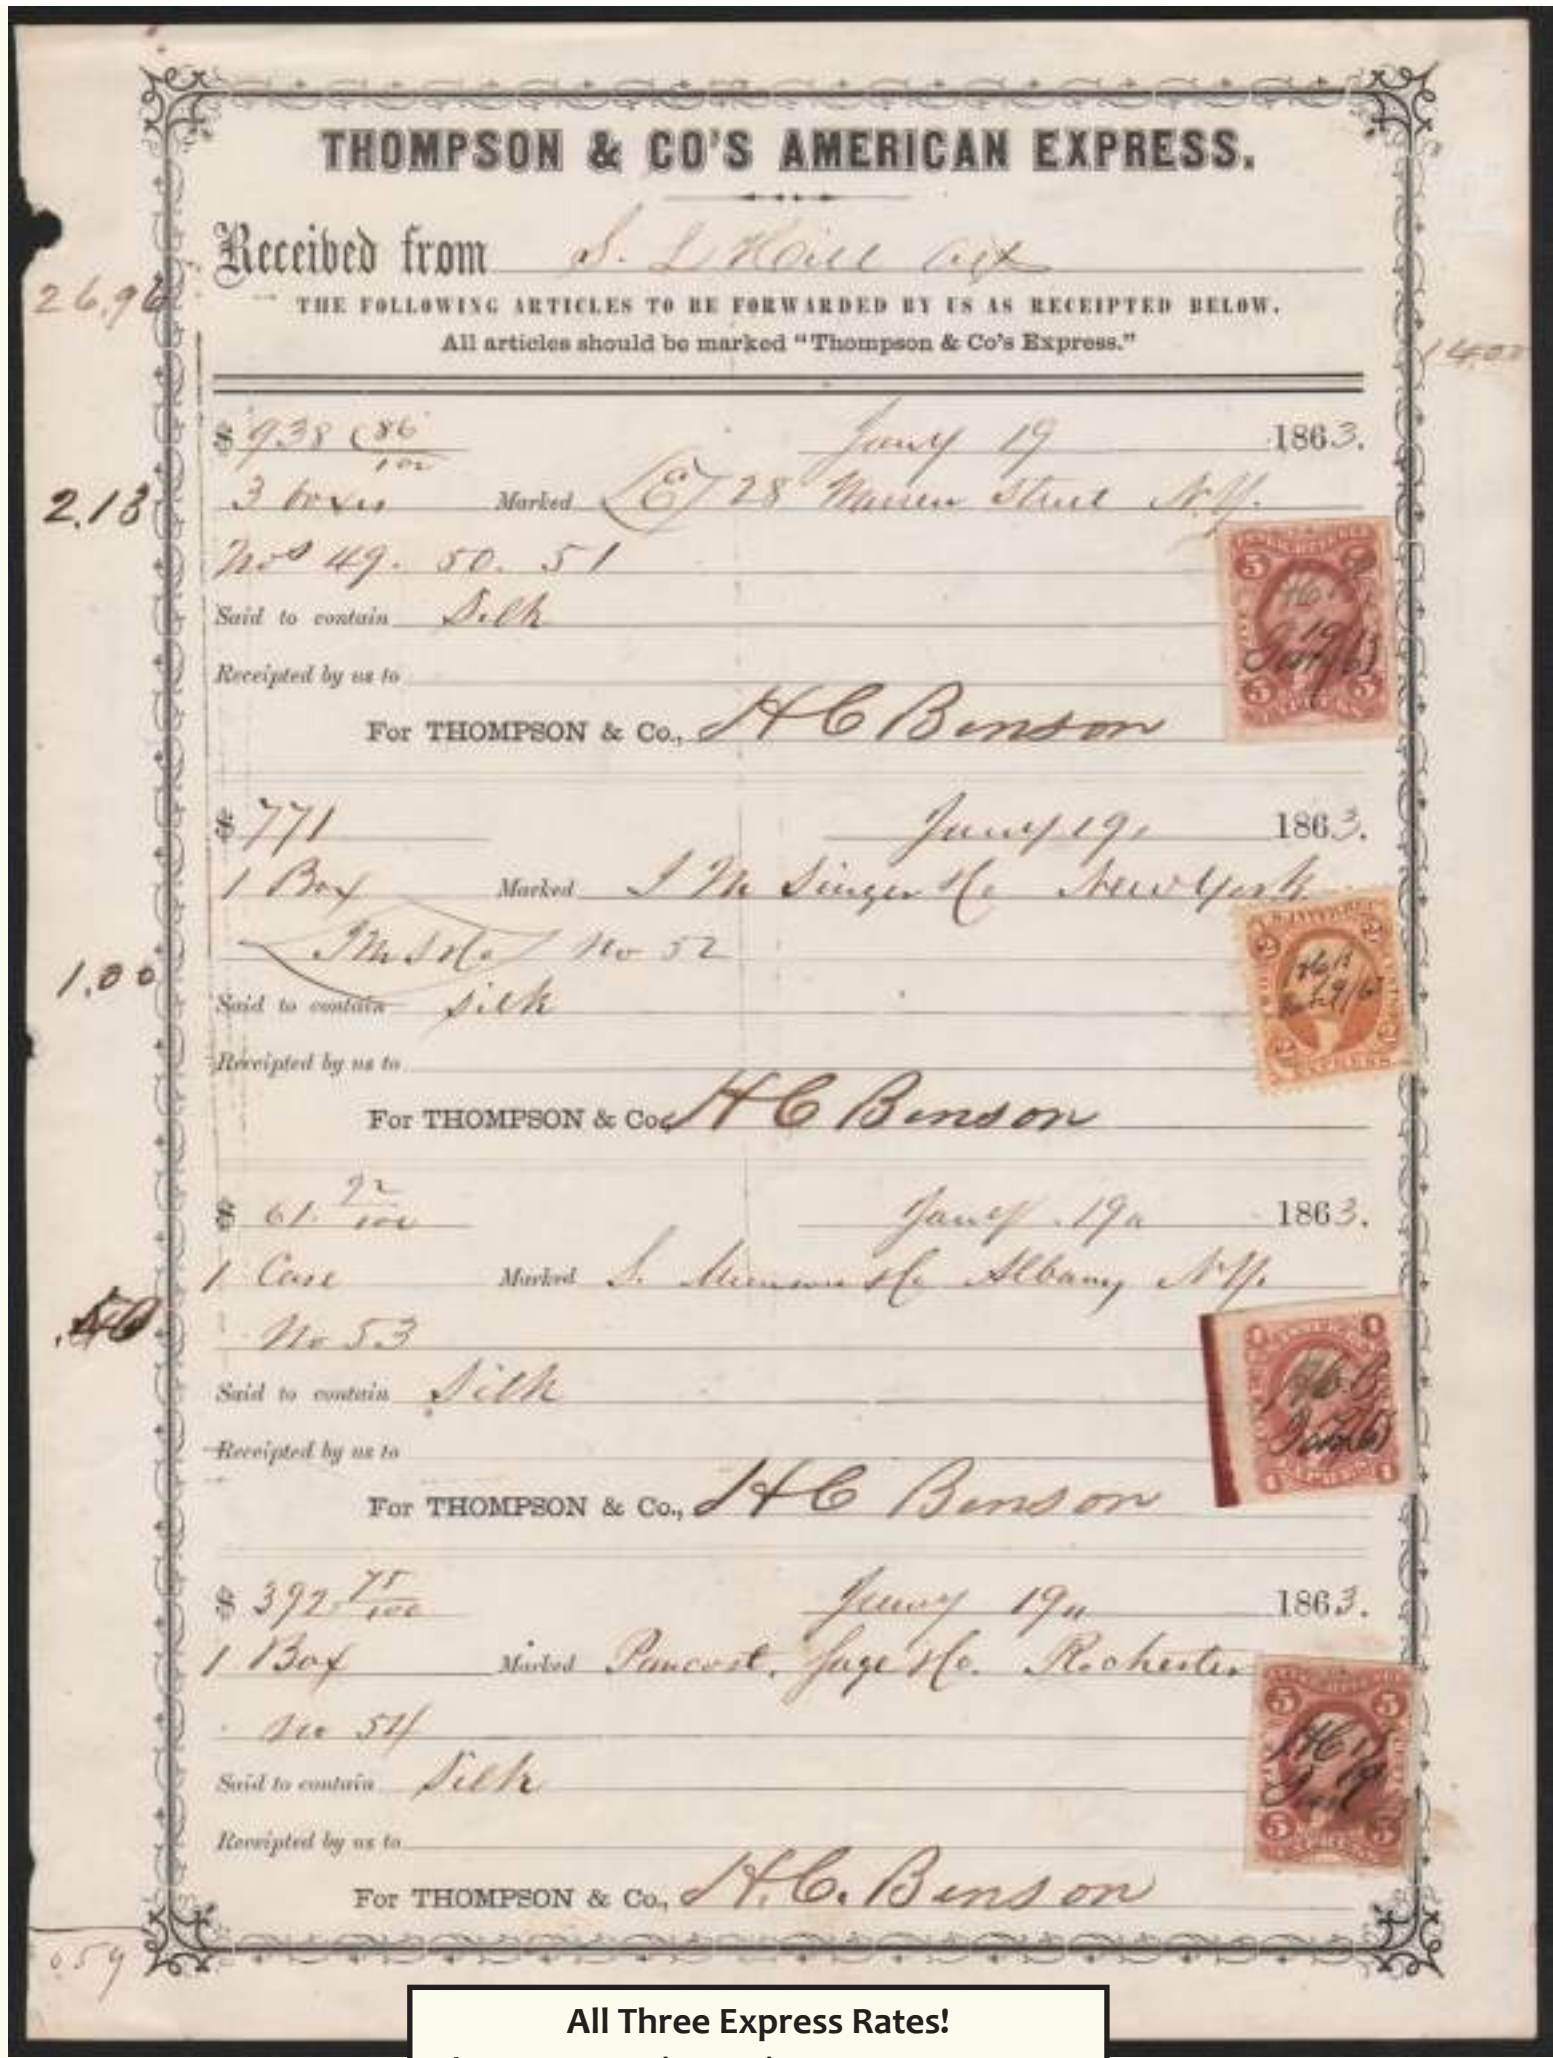 THOMPSON & CO'S AMERICAN EXPRESS.
Received from S. L Hill
THE FOLLOWING ARTICLES TO BE FORWARDED BY US AS RECEIPTED BELOW.
All articles should be marked "Thompson & Co's Express."
26.96
1400
$ 938 86/100 Jany 19 1863.
2.13
3 boxes Marked (E) 28 Warren Street N.Y.
Nos 49. 50. 51
Said to contain Silk
Receipted by us to
For THOMPSON & Co., H C Benson
5
5 5
EXPRESS
$ 771 Jany 19, 1863.
1 Box Marked I M Singer &Co New York
I M S &Co No 52
1.00
Said to contain silk
Receipted by us to
For THOMPSON & Co., H C Benson
2 2
2 2
EXPRESS
$ 61. 92/100 Jany 19 1863.
1 Case Marked S. Munson &Co Albany N.Y.
No 53
Said to contain Silk
Receipted by us to
For THOMPSON & Co., H C Benson
1 1
1 1
EXPRESS
$ 392 75/100 Jany 19 1863.
1 Box Marked Pancost, Sage &Co. Rochester
No 54
Said to contain Silk
Receipted by us to
For THOMPSON & Co., H. C. Benson
5 5
5 5
EXPRESS
All Three Express Rates!